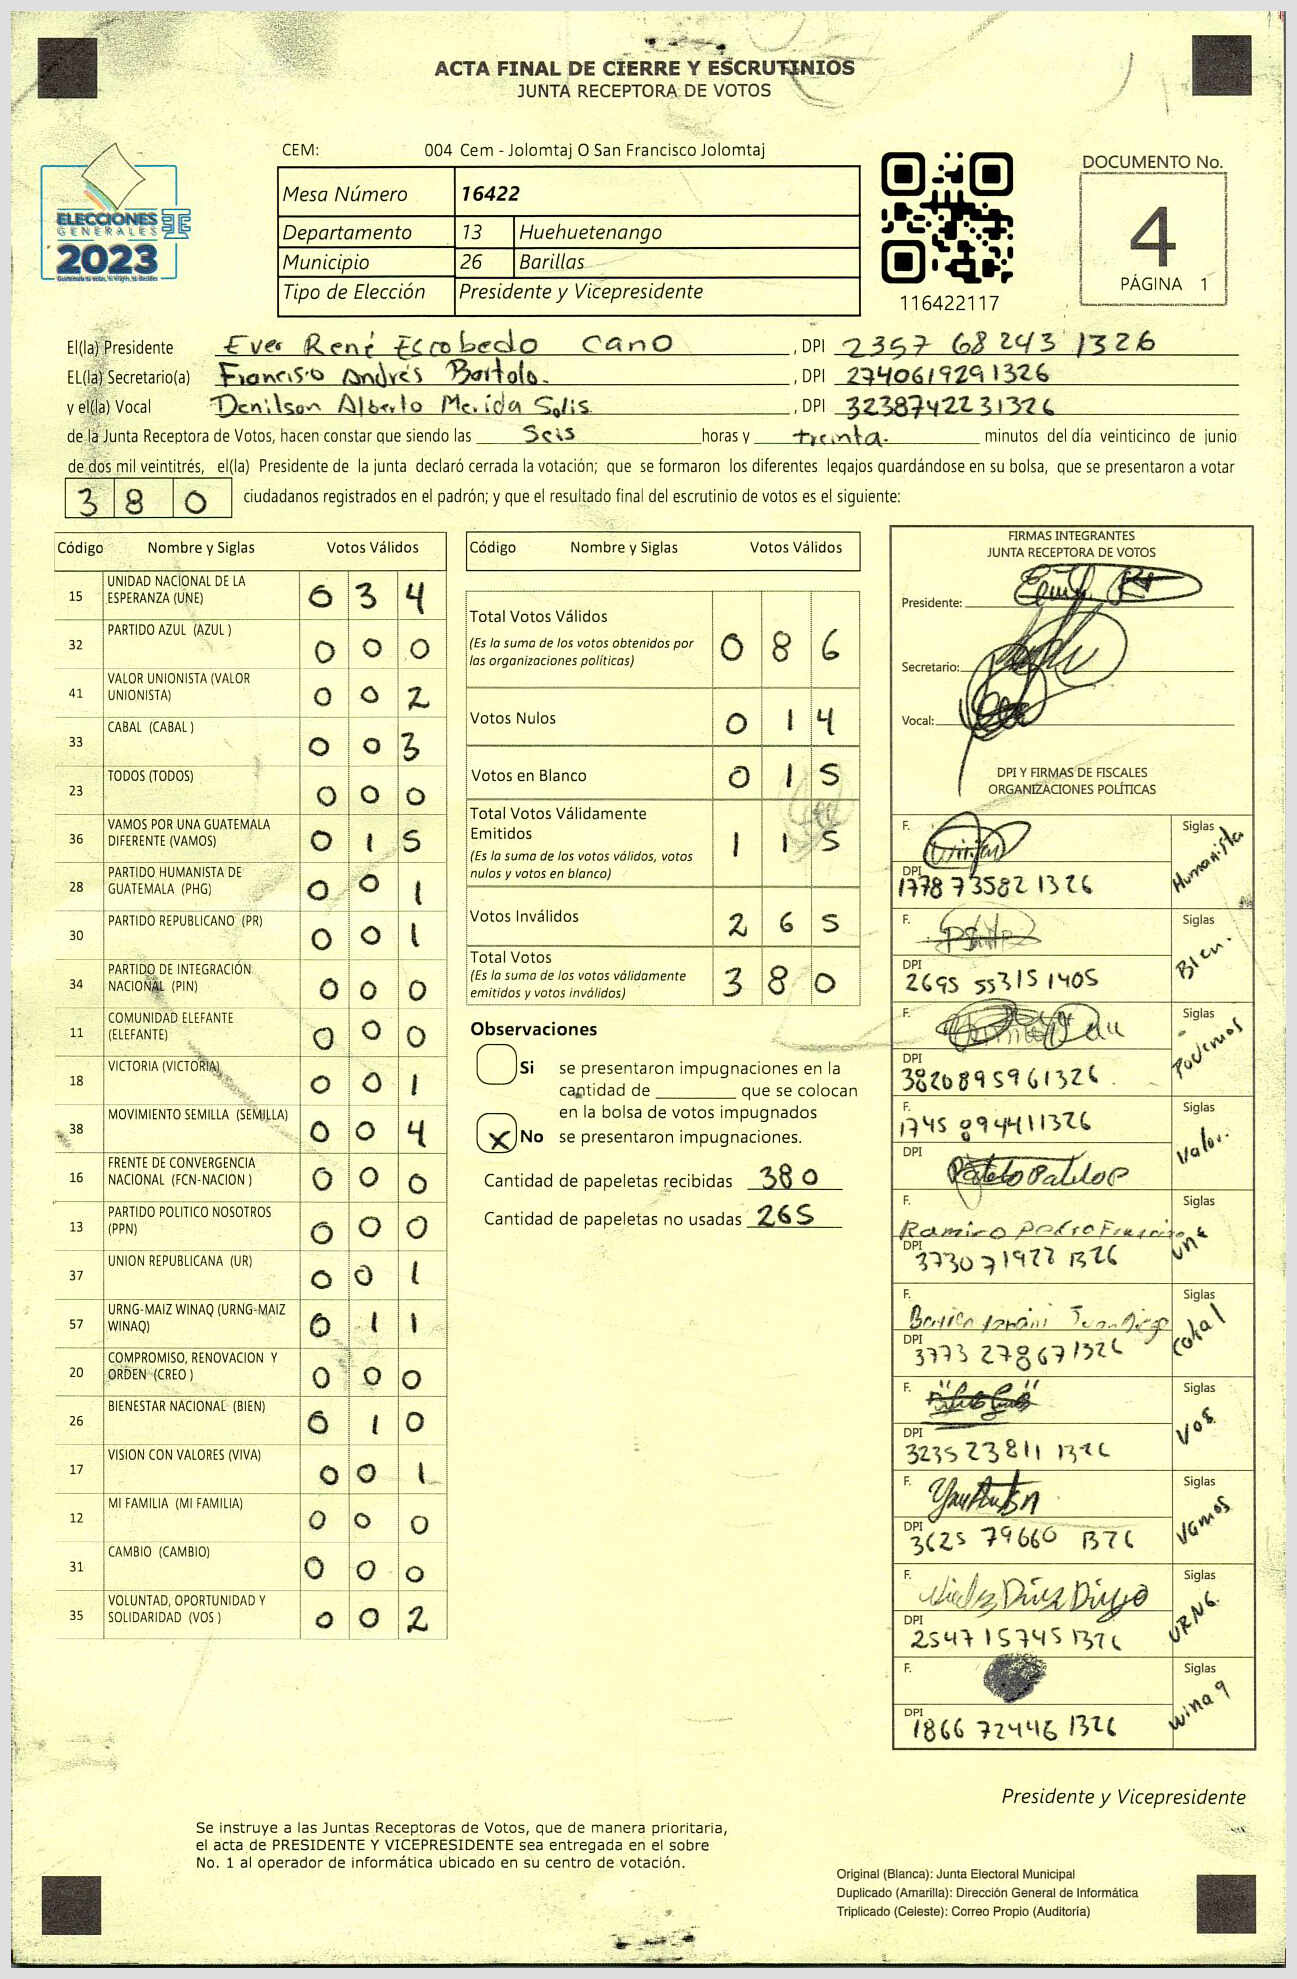 ACTA FINAL DE CIERRE Y ESCRUTINIOS
JUNTA RECEPTORA DE VOTOS
CEM: 004 Cem - Jolomtaj O San Francisco Jolomtaj
ELECCIONES
GENERALES
2023
Mesa Número 16422
Departamento 13 Huehuetenango
Municipio 26 Barillas
Tipo de Elección Presidente y Vicepresidente
116422117
DOCUMENTO No.
4
PÁGINA 1
El(la) Presidente Ever René Escobedo Cano , DPI 2357 68243 1326
EL(la) Secretario(a) Francisco Andrés Bartolo. , DPI 2740619291326
y el(la) Vocal Denilson Alberto Merida Solis , DPI 3238742231326
de la Junta Receptora de Votos, hacen constar que siendo las Seis horas y treinta. minutos del día veinticinco de junio
de dos mil veintitrés, el(la) Presidente de la junta declaró cerrada la votación; que se formaron los diferentes legajos quardándose en su bolsa, que se presentaron a votar
380 ciudadanos registrados en el padrón; y que el resultado final del escrutinio de votos es el siguiente:
Código Nombre y Siglas Votos Válidos
15 UNIDAD NACIONAL DE LA ESPERANZA (UNE) 0 3 4
32 PARTIDO AZUL (AZUL ) 0 0 0
41 VALOR UNIONISTA (VALOR UNIONISTA) 0 0 2
33 CABAL (CABAL ) 0 0 3
23 TODOS (TODOS) 0 0 0
36 VAMOS POR UNA GUATEMALA DIFERENTE (VAMOS) 0 1 5
28 PARTIDO HUMANISTA DE GUATEMALA (PHG) 0 0 1
30 PARTIDO REPUBLICANO (PR) 0 0 1
34 PARTIDO DE INTEGRACIÓN NACIONAL (PIN) 0 0 0
11 COMUNIDAD ELEFANTE (ELEFANTE) 0 0 0
18 VICTORIA (VICTORIA) 0 0 1
38 MOVIMIENTO SEMILLA (SEMILLA) 0 0 4
16 FRENTE DE CONVERGENCIA NACIONAL (FCN-NACION ) 0 0 0
13 PARTIDO POLITICO NOSOTROS (PPN) 0 0 0
37 UNION REPUBLICANA (UR) 0 0 1
57 URNG-MAIZ WINAQ (URNG-MAIZ WINAQ) 0 1 1
20 COMPROMISO, RENOVACION Y ORDEN (CREO ) 0 0 0
26 BIENESTAR NACIONAL (BIEN) 0 1 0
17 VISION CON VALORES (VIVA) 0 0 1
12 MI FAMILIA (MI FAMILIA) 0 0 0
31 CAMBIO (CAMBIO) 0 0 0
35 VOLUNTAD, OPORTUNIDAD Y SOLIDARIDAD (VOS ) 0 0 2
Código Nombre y Siglas Votos Válidos
Total Votos Válidos 0 8 6
(Es la suma de los votos obtenidos por
las organizaciones políticas)
Votos Nulos 0 1 4
Votos en Blanco 0 1 5
Total Votos Válidamente
Emitidos 1 1 5
(Es la suma de los votos válidos, votos
nulos y votos en blanco)
Votos Inválidos 2 6 5
Total Votos 3 8 0
(Es la suma de los votos válidamente
emitidos y votos inválidos)
Observaciones
Si se presentaron impugnaciones en la
cantidad de ________ que se colocan
en la bolsa de votos impugnados
X No se presentaron impugnaciones.
Cantidad de papeletas recibidas 380
Cantidad de papeletas no usadas 265
FIRMAS INTEGRANTES
JUNTA RECEPTORA DE VOTOS
Presidente:
Secretario:
Vocal:
DPI Y FIRMAS DE FISCALES
ORGANIZACIONES POLÍTICAS
F. Siglas Humanista
DPI 1778 73582 1326
F. Siglas Bien.
DPI 2695 55315 1405
F. Siglas Podemos
DPI 3820895961326
F. 1745 894411326 Siglas Valor.
DPI
F. Ramiro Pedro Francisco Siglas une
DPI 3730 71922 1326
F. Siglas Cabal
DPI 3773 27867 1326
F. Siglas VOS
DPI 3235 23811 1326
F. Siglas Vamos
DPI 3625 79660 1326
F. Siglas URNG.
DPI 2547 15745 1326
F. Siglas winaq
DPI 1866 72446 1326
Presidente y Vicepresidente
Se instruye a las Juntas Receptoras de Votos, que de manera prioritaria,
el acta de PRESIDENTE Y VICEPRESIDENTE sea entregada en el sobre
No. 1 al operador de informática ubicado en su centro de votación.
Original (Blanca): Junta Electoral Municipal
Duplicado (Amarilla): Dirección General de Informática
Triplicado (Celeste): Correo Propio (Auditoría)